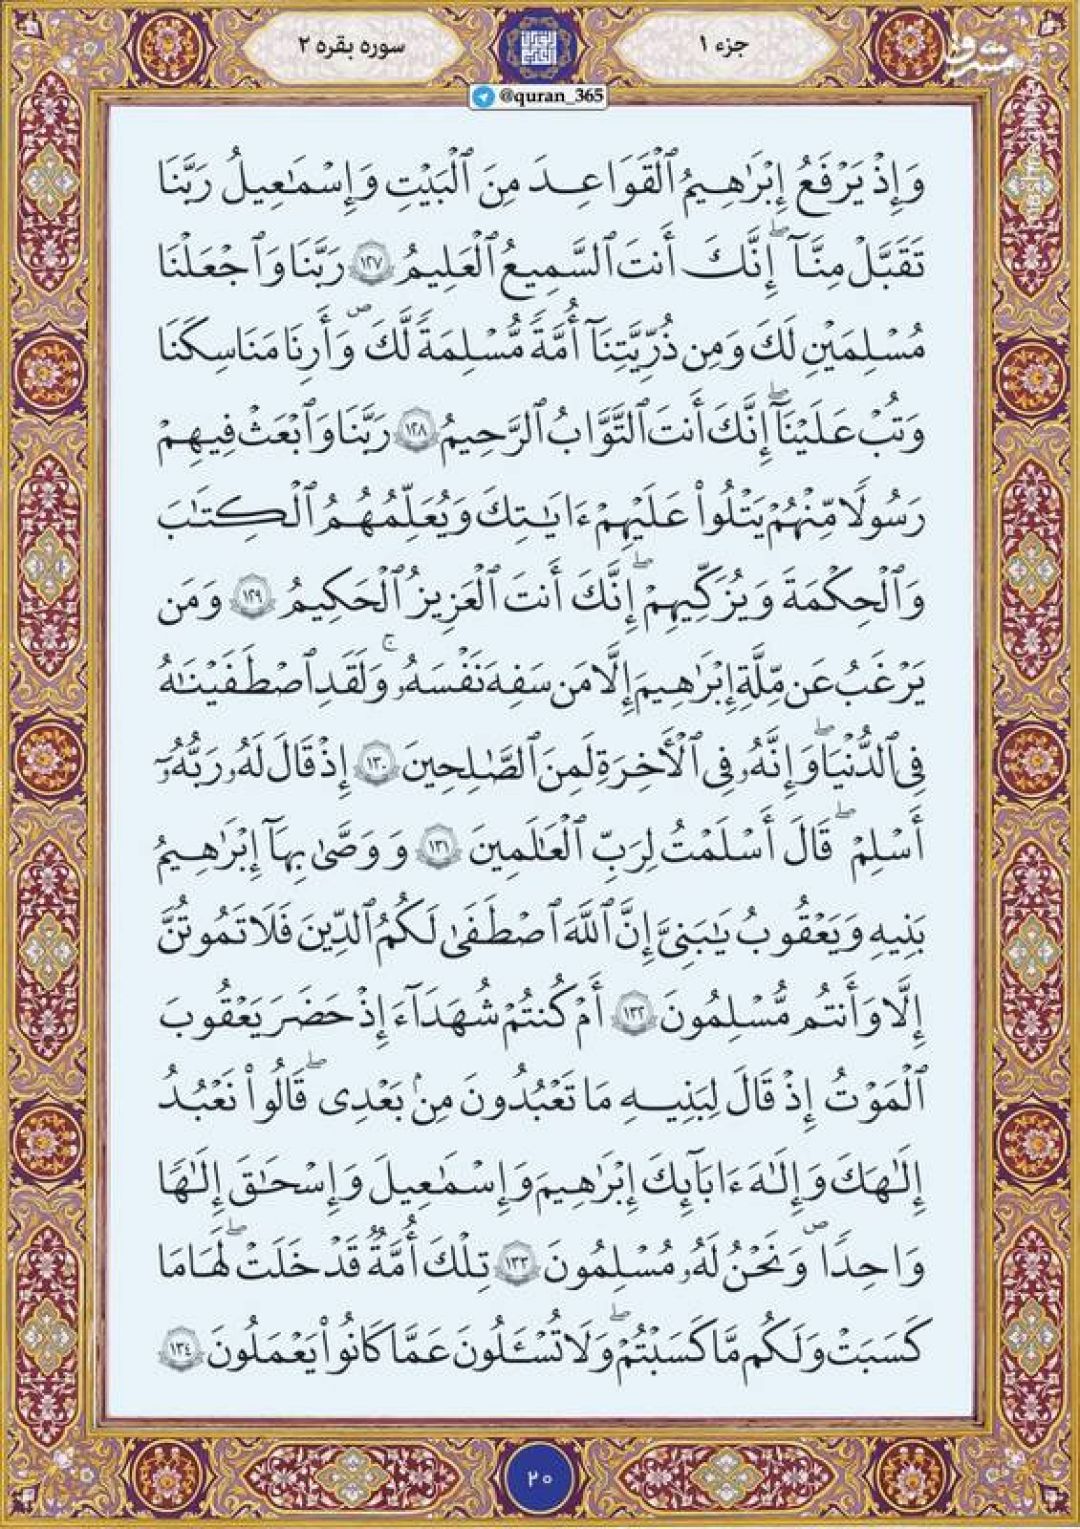 جزء ۱
سوره بقره ۲
مشرق
@quran_365
وَإِذْ يَرْفَعُ إِبْرَٰهِـيمُ ٱلْقَوَاعِـدَ مِنَ ٱلْبَيْتِ وَإِسْمَٰعِيلُ رَبَّنَا
تَقَبَّلْ مِنَّآ ۖ إِنَّكَ أَنتَ ٱلسَّمِيعُ ٱلْعَلِيمُ ﴿١٢٧﴾ رَبَّنَا وَٱجْعَلْنَا
مُسْلِمَيْنِ لَكَ وَمِن ذُرِّيَّتِنَآ أُمَّةً مُّسْلِمَةً لَّكَ ۖ وَأَرِنَا مَنَاسِكَنَا
وَتُبْ عَلَيْنَآ ۖ إِنَّكَ أَنتَ ٱلتَّوَّابُ ٱلرَّحِيمُ ﴿١٢٨﴾ رَبَّنَا وَٱبْعَثْ فِيهِمْ
رَسُولًا مِّنْهُمْ يَتْلُوا۟ عَلَيْهِمْ ءَايَٰتِكَ وَيُعَلِّمُهُمُ ٱلْكِتَٰبَ
وَٱلْحِكْمَةَ وَيُزَكِّيهِمْ ۖ إِنَّكَ أَنتَ ٱلْعَزِيزُ ٱلْحَكِيمُ ﴿١٢٩﴾ وَمَن
يَرْغَبُ عَن مِّلَّةِ إِبْرَٰهِيمَ إِلَّا مَن سَفِهَ نَفْسَهُۥ ۚ وَلَقَدِ ٱصْطَفَيْنَٰهُ
فِى ٱلدُّنْيَا ۖ وَإِنَّهُۥ فِى ٱلْأَخِرَةِ لَمِنَ ٱلصَّٰلِحِينَ ﴿١٣٠﴾ إِذْ قَالَ لَهُۥ رَبُّهُۥٓ
أَسْلِمْ ۖ قَالَ أَسْلَمْتُ لِرَبِّ ٱلْعَٰلَمِينَ ﴿١٣١﴾ وَوَصَّىٰ بِهَآ إِبْرَٰهِـيمُ
بَنِيهِ وَيَعْقُوبُ يَٰبَنِىَّ إِنَّ ٱللَّهَ ٱصْطَفَىٰ لَكُمُ ٱلدِّينَ فَلَا تَمُوتُنَّ
إِلَّا وَأَنتُم مُّسْلِمُونَ ﴿١٣٢﴾ أَمْ كُنتُمْ شُهَدَآءَ إِذْ حَضَرَ يَعْقُوبَ
ٱلْمَوْتُ إِذْ قَالَ لِبَنِيـهِ مَا تَعْبُدُونَ مِنۢ بَعْدِى ۖ قَالُوا۟ نَعْبُدُ
إِلَٰهَكَ وَإِلَٰهَ ءَابَآئِكَ إِبْرَٰهِيمَ وَإِسْمَٰعِيلَ وَإِسْحَٰقَ إِلَٰهًا
وَاحِدًا ۖ وَنَحْنُ لَهُۥ مُسْلِمُونَ ﴿١٣٣﴾ تِلْكَ أُمَّةٌ قَدْ خَلَتْ ۖ لَهَا مَا
كَسَبَتْ وَلَكُم مَّا كَسَبْتُمْ ۖ وَلَا تُسْـَٔلُونَ عَمَّا كَانُوا۟ يَعْمَلُونَ ﴿١٣٤﴾
۲۰